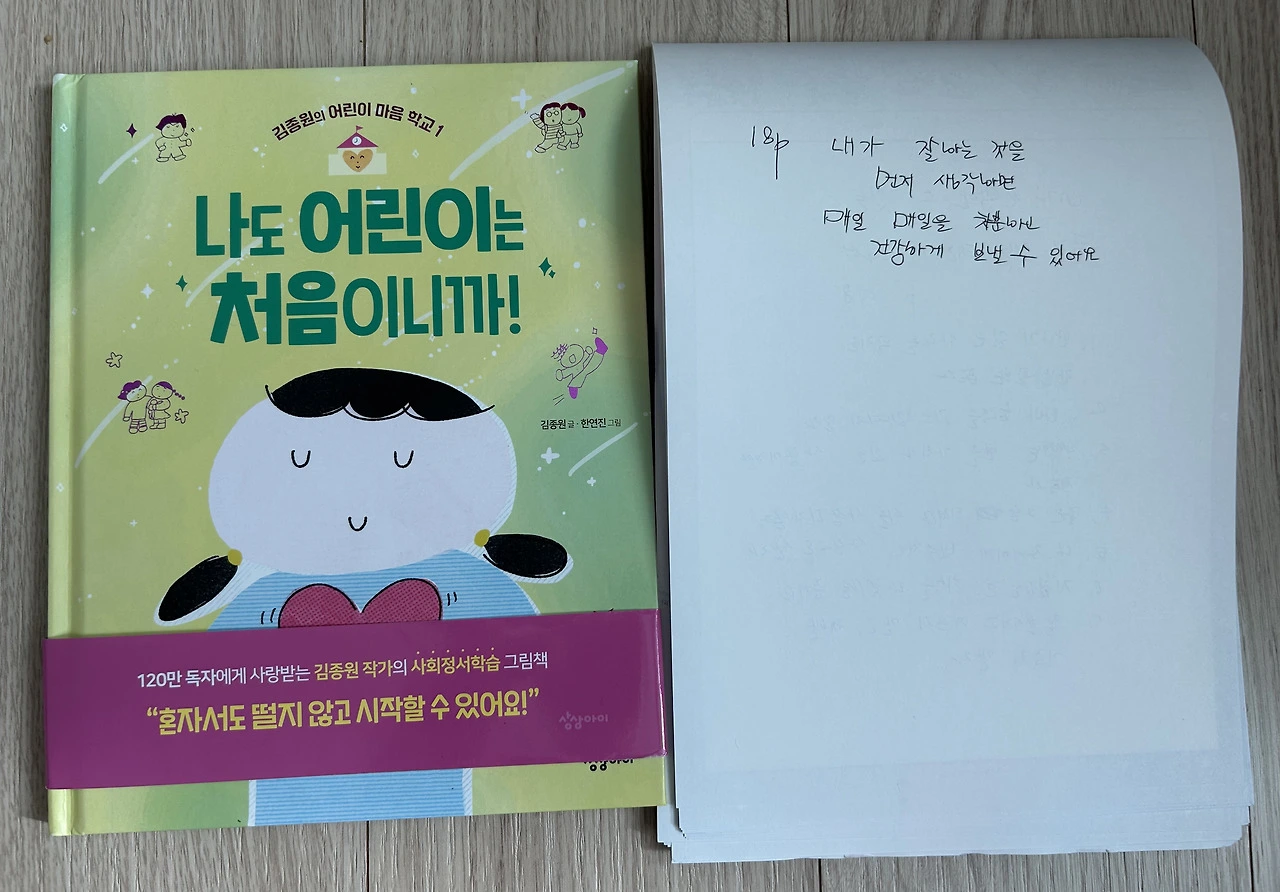 김종원의 어린이 마음 학교 1
나도 어린이는
처음이니까!
김종원 글·한연진 그림
120만 독자에게 사랑받는 김종원 작가의 사회정서학습 그림책
“혼자서도 떨지 않고 시작할 수 있어요!”
상상아이
상상아이
18p 내가 잘하는 것을
먼저 생각하면
매일 매일을
건강하게 보낼 수 있어요